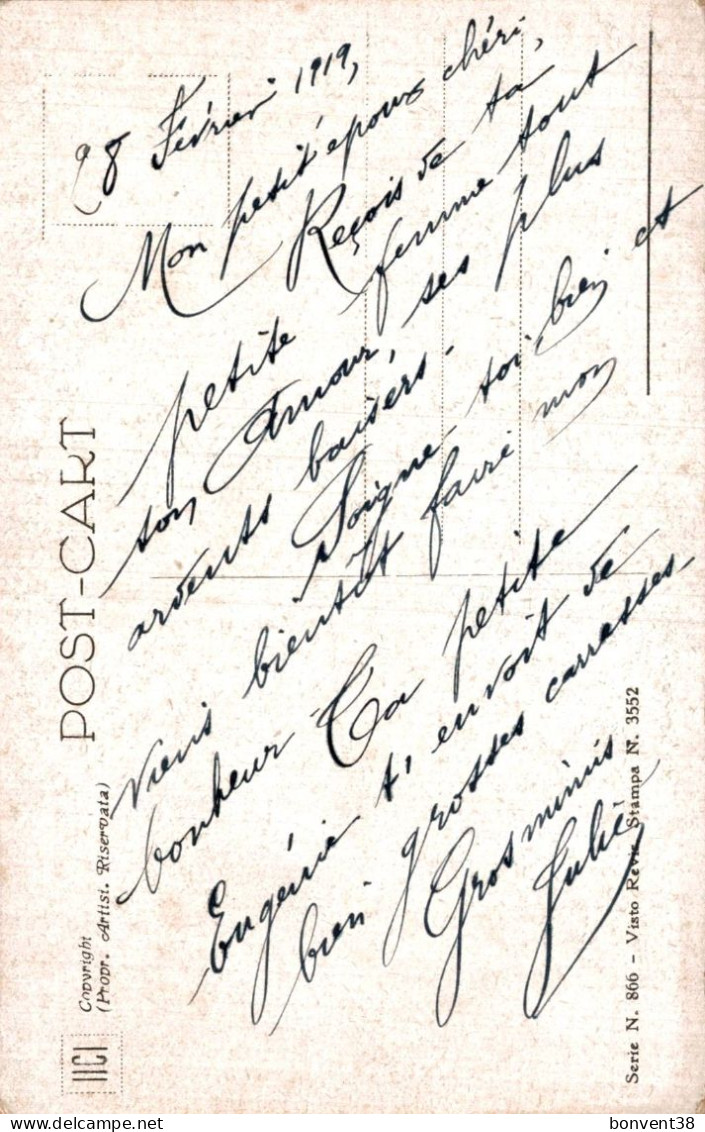 28 Février 1919,
Mon petit époux chéri,
Reçois de ta
petite femme tout
ton Amour, ses plus
ardents baisers.
Soigne-toi bien et
viens bientôt faire mon
bonheur Ta petite
Eugénie t'envoit de
bien grosses carresses.
Gros mimis
POST-CART
Copyright
(Propr. Artist. Riservata)
Serie N. 866 - Visto Revis. Stampa N. 3552
bonvent38